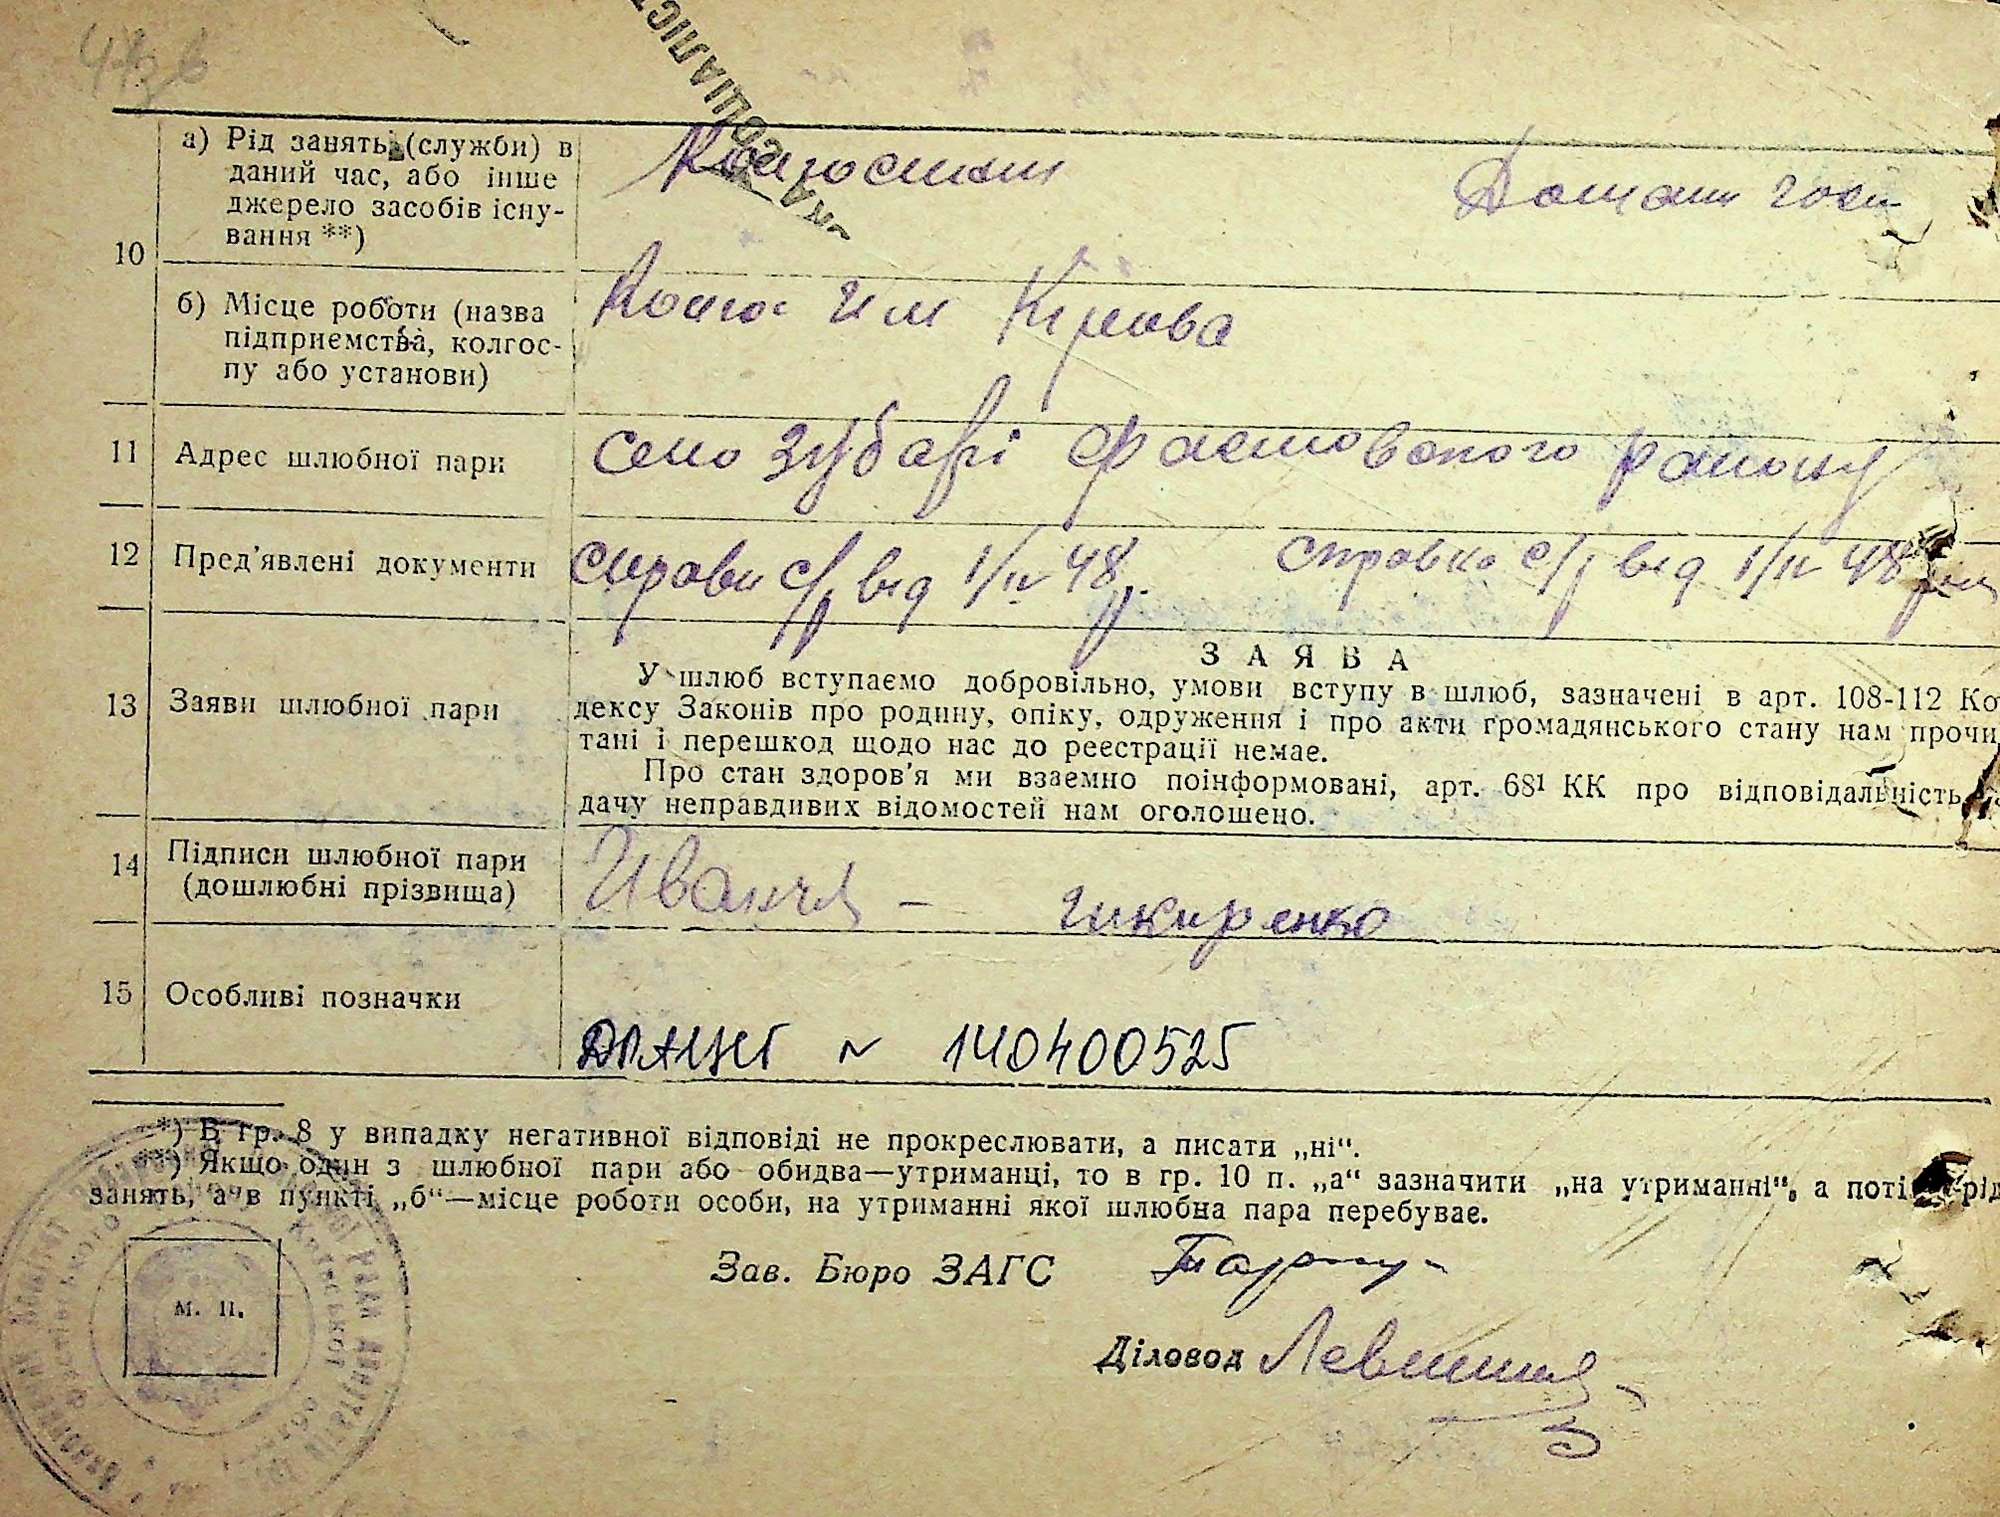 а) Рід занять (служби) в
даний час, або інше
джерело засобів існу-
вання **)
10
Домаш госп
б) Місце роботи (назва
підприємства, колгос-
пу або установи)
Колгос Им Кірова
11 Адрес шлюбної пари
село Зубарі Фастовского району
12 Пред'явлені документи
справк с/р від 1/IV 48р. справка с/р від 1/IV 48
13 Заяви шлюбної пари
ЗАЯВА
У шлюб вступаємо добровільно, умови вступу в шлюб, зазначені в арт. 108-112 Ко
дексу Законів про родину, опіку, одруження і про акти громадянського стану нам прочи
тані і перешкод щодо нас до реєстрації немає.
Про стан здоров'я ми взаємно поінформовані, арт. 68¹ КК про відповідальність за
дачу неправдивих відомостей нам оголошено.
14 Підписи шлюбної пари
(дошлюбні прізвища)
15 Особливі позначки
ДРАЦСГ N 140400525
*) В гр. 8 у випадку негативної відповіді не прокреслювати, а писати „ні“.
**) Якщо один з шлюбної пари або обидва—утриманці, то в гр. 10 п. „а“ зазначити „на утриманні“, а потім рід
занять, а в пункті „б“—місце роботи особи, на утриманні якої шлюбна пара перебуває.
Зав. Бюро ЗАГС
м. п.
Діловод